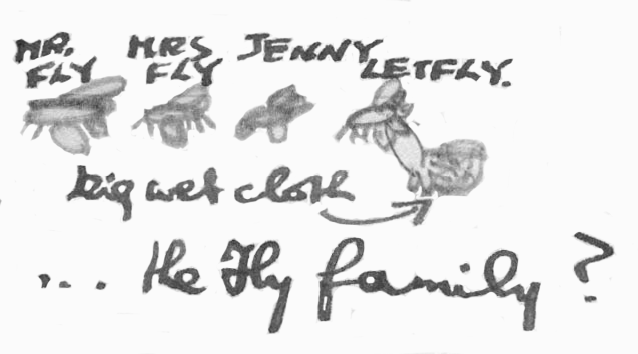 MR. FLY
MRS FLY
JENNY
LETFLY.
big wet cloth
... the Fly family?